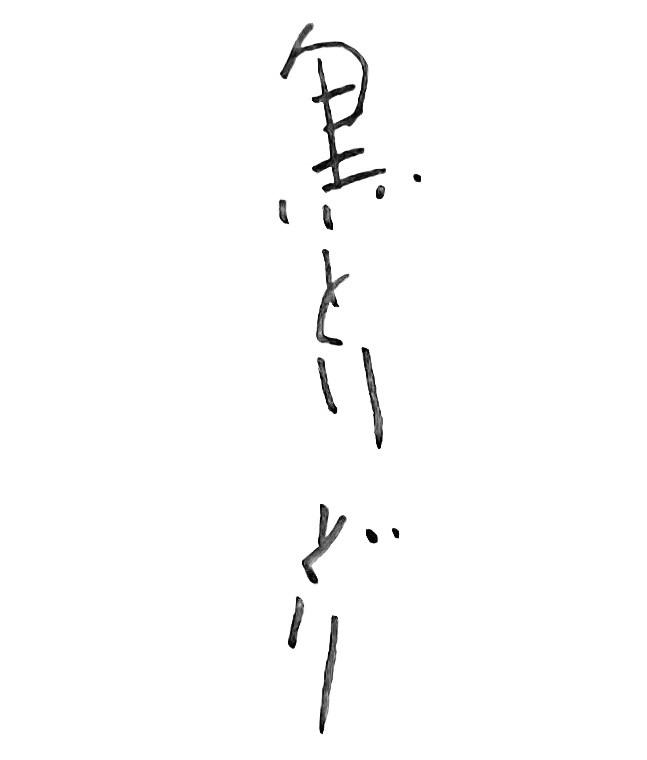 黒とりどり